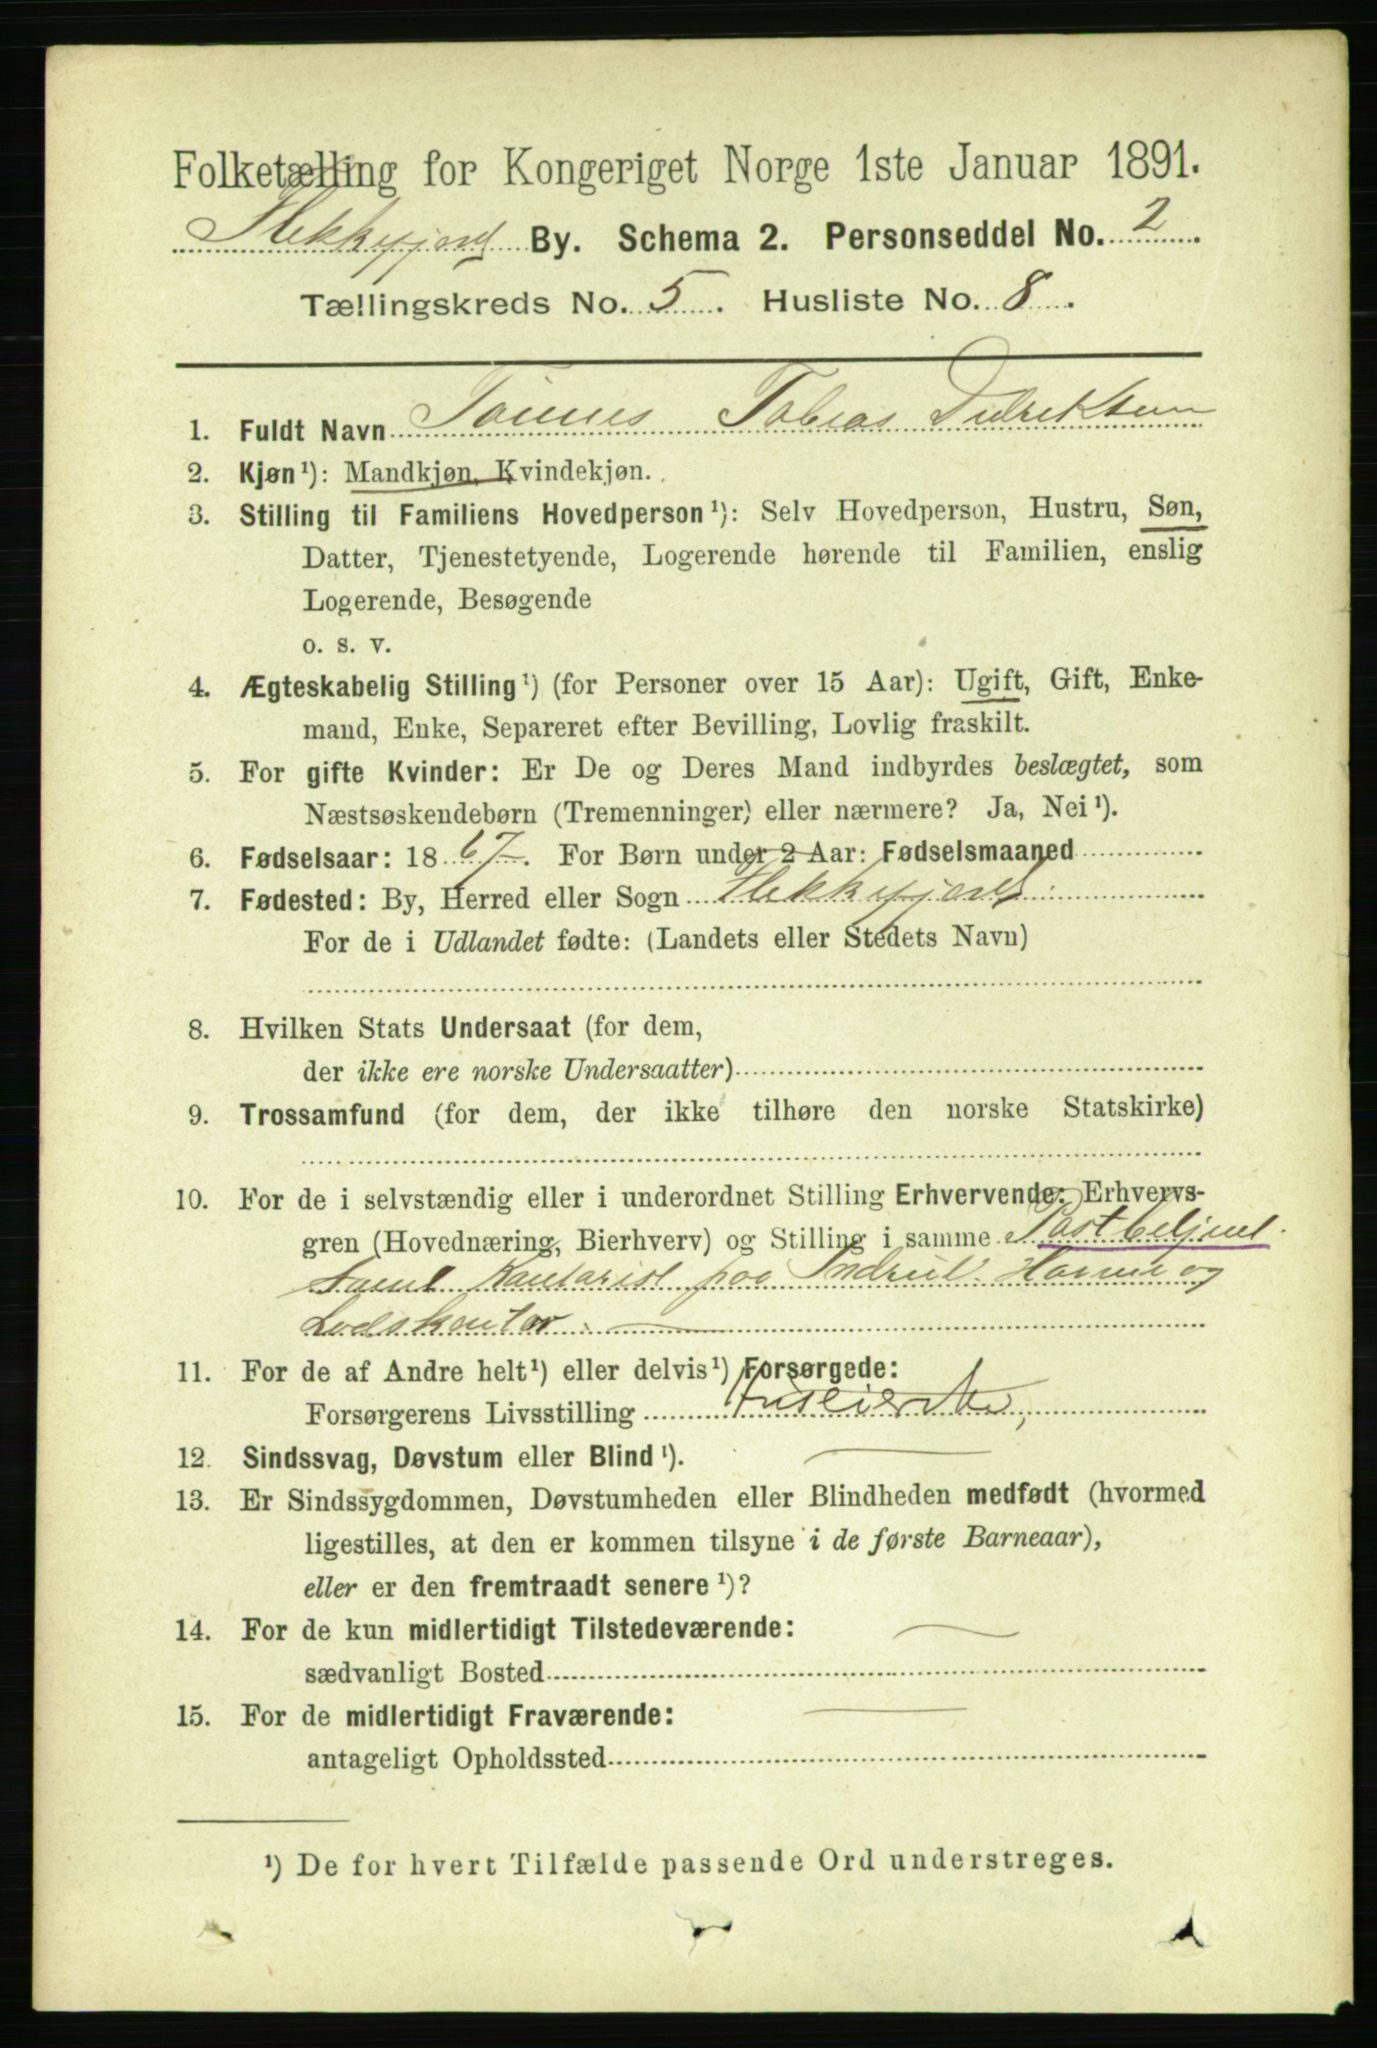 Folketælling for Kongeriget Norge 1ste Januar 1891.
Flekkefjord By. Schema 2. Personseddel No. 2
Tællingskreds No. 5. Husliste No. 8.
1. Fuldt Navn Tønnes Tobias Didriksen
2. Kjøn¹): Mandkjøn, Kvindekjøn.
3. Stilling til Familiens Hovedperson¹): Selv Hovedperson, Hustru, Søn,
Datter, Tjenestetyende, Logerende hørende til Familien, enslig
Logerende, Besøgende
o. s. v.
4. Ægteskabelig Stilling¹) (for Personer over 15 Aar): Ugift, Gift, Enke-
mand, Enke, Separeret efter Bevilling, Lovlig fraskilt.
5. For gifte Kvinder: Er De og Deres Mand indbyrdes beslægtet, som
Næstsøskendebørn (Tremenninger) eller nærmere? Ja, Nei¹).
6. Fødselsaar: 1867. For Børn under 2 Aar: Fødselsmaaned
7. Fødested: By, Herred eller Sogn Flekkefjord
For de i Udlandet fødte: (Landets eller Stedets Navn)
8. Hvilken Stats Undersaat (for dem,
der ikke ere norske Undersaatter)
9. Trossamfund (for dem, der ikke tilhøre den norske Statskirke)
10. For de i selvstændig eller i underordnet Stilling Erhvervende: Erhvervs-
gren (Hovednæring, Bierhverv) og Stilling i samme Postbetjent.
samt Kontorist paa Havne og
Lodskontor.
11. For de af Andre helt¹) eller delvis¹) Forsørgede:
Forsørgerens Livsstilling Huseierske,
12. Sindssvag, Døvstum eller Blind¹).
13. Er Sindssygdommen, Døvstumheden eller Blindheden medfødt (hvormed
ligestilles, at den er kommen tilsyne i de første Barneaar),
eller er den fremtraadt senere¹)?
14. For de kun midlertidigt Tilstedeværende:
sædvanligt Bosted
15. For de midlertidigt Fraværende:
antageligt Opholdssted
¹) De for hvert Tilfælde passende Ord understreges.